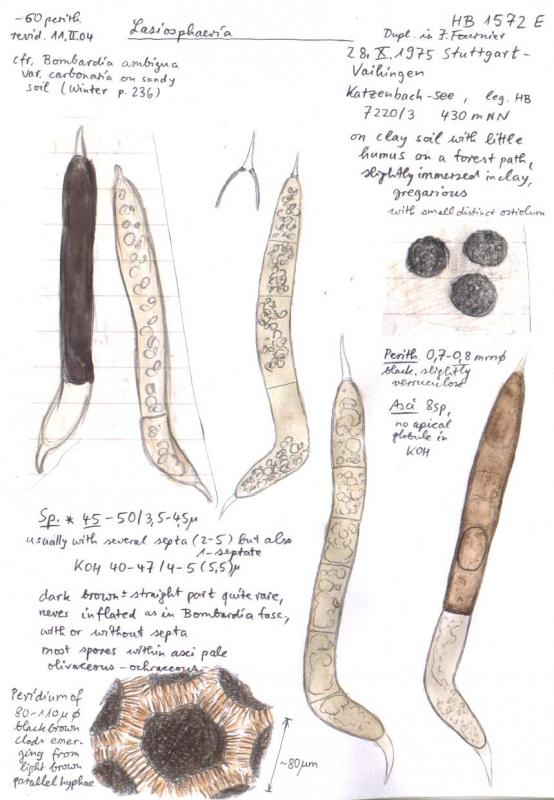 ~60 perith.
revid. 11.II.04
Lasiosphaeria
HB 1572 E
Dupl. in J. Fournier
cfr. Bombardia ambigua
var. carbonaria on sandy
soil (Winter p. 236)
28.X.1975 Stuttgart-
Vaihingen
Katzenbach-See, leg. HB
7220/3 430 mNN
on clay soil with little
humus on a forest path,
slightly immersed in clay,
gregarious
with small distinct ostiolum
Perith 0,7-0,8 mm ø
black, slightly
verruculose
Asci 8sp,
no apical
globule in
KOH
Sp. * 45-50/3,5-4,5µ
usually with several septa (2-5) but also
1-septate
KOH 40-47/4-5 (5,5)µ
dark brown ± straight part quite rare,
never inflated as in Bombardia fasc.,
with or without septa
most spores within asci pale
olivaceous-ochraceous
Peridium of
80-110µ ø
black brown
clods emer-
ging from
light brown
parallel hyphae
~80µm